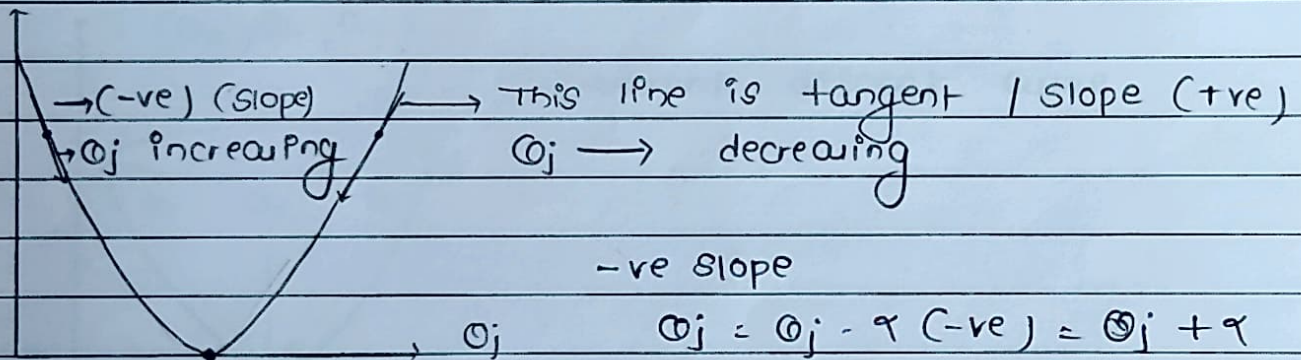 →(-ve) (slope) → This line is tangent / slope (+ve)
→θj increasing θj → decreasing
-ve slope
θj θj = θj - α (-ve) = θj + α